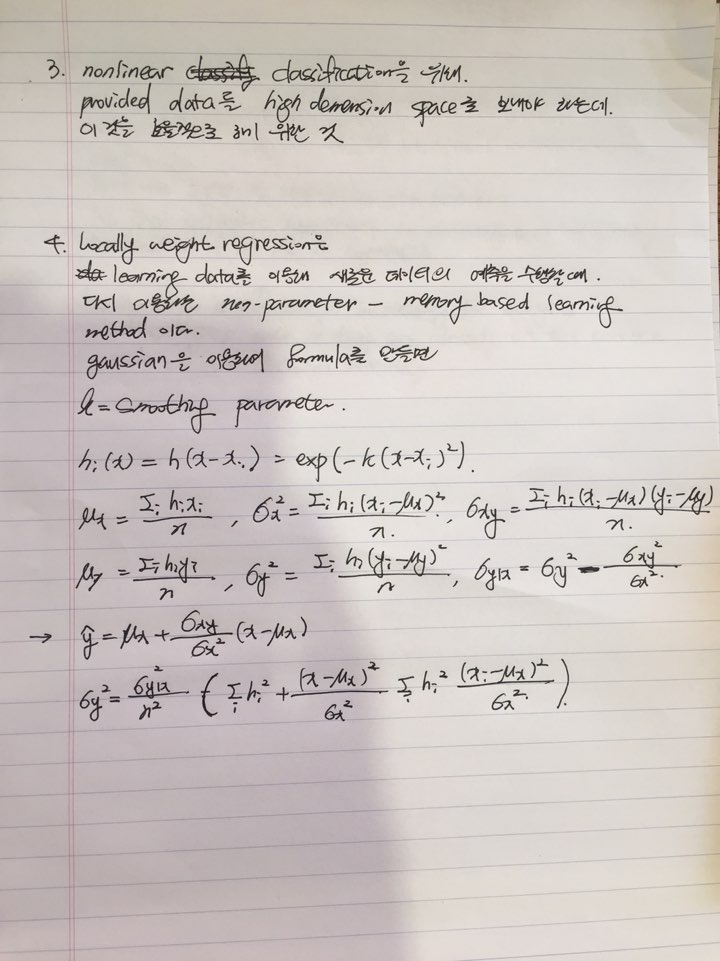 3. nonlinear classification을 위해.
provided data를 high demension space로 보내야 하는데.
이것을 효율적으로 하기 위한 것
4. Locally weight regression은
learning data를 이용해 새로운 데이터의 예측을 수행할 때.
다시 이용하는 non-parameter – memory based learning
method 이다.
gaussian을 이용하여 formula를 만들면
k = smoothing parameter.
hᵢ(x) = h(x-xᵢ) = exp(-k(x-xᵢ)²).
μx = Σᵢ hᵢxᵢ / n , σx² = Σᵢ hᵢ(xᵢ-μx)² / n. , σxy = Σᵢ hᵢ(xᵢ-μx)(yᵢ-μy) / n.
μy = Σᵢ hᵢyᵢ / n , σy² = Σᵢ hᵢ(yᵢ-μy)² / n , σy|x = σy² - σxy² / σx².
→ ŷ = μx + σxy / σx² (x-μx)
σy² = σy|x² / n² ( Σᵢ hᵢ² + (x-μx)² / σx² Σᵢ hᵢ² (xᵢ-μx)² / σx². ).